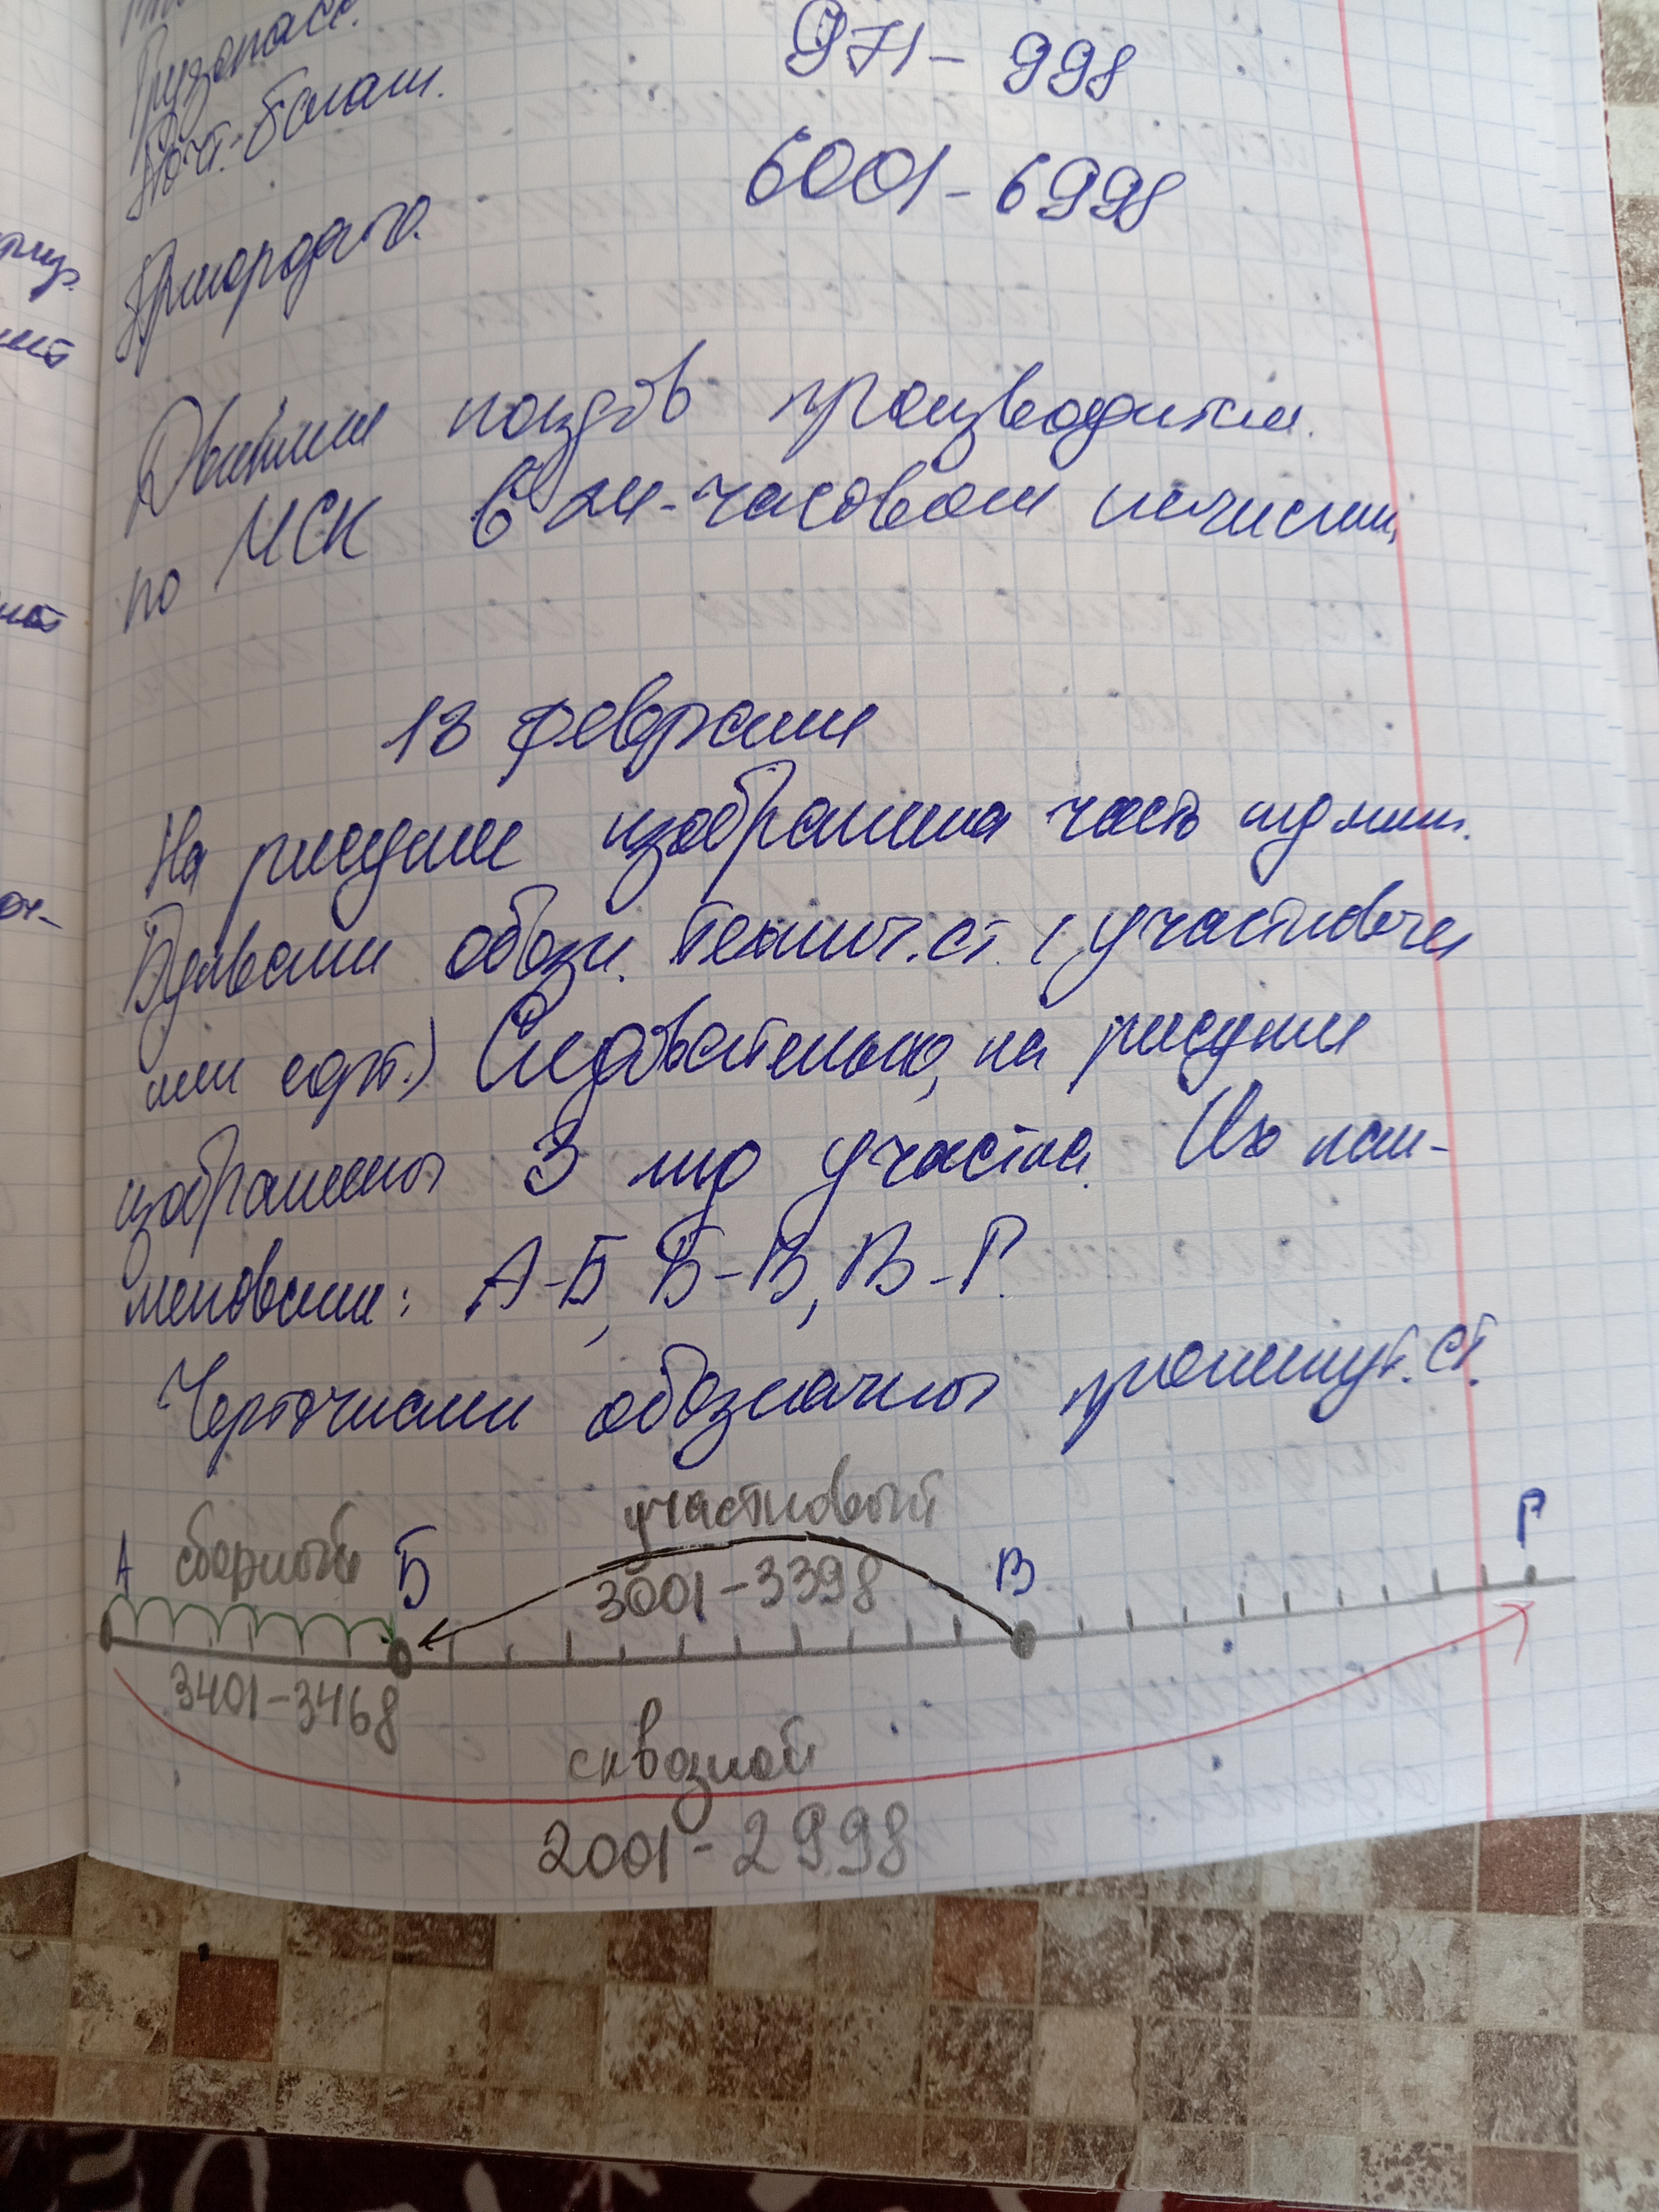 Грузопасс.
971 - 998
Почт.-багаж.
6001 - 6998
Пригородн.
Движение поездов производится
по МСК в 24-часовом исчислении
18 февраля
На рисунке изображена часть жд линии.
Буквами обозн. технич. ст. (участковые
или сорт.) Следовательно, на рисунке
изображены 3 жд участка. Их наи-
менование: А-Б, Б-В, В-Г.
Черточками обозначены промежут. ст.
участковый
А сборный Б 3001-3398 В Г
3401-3468
сквозной
2001-2998